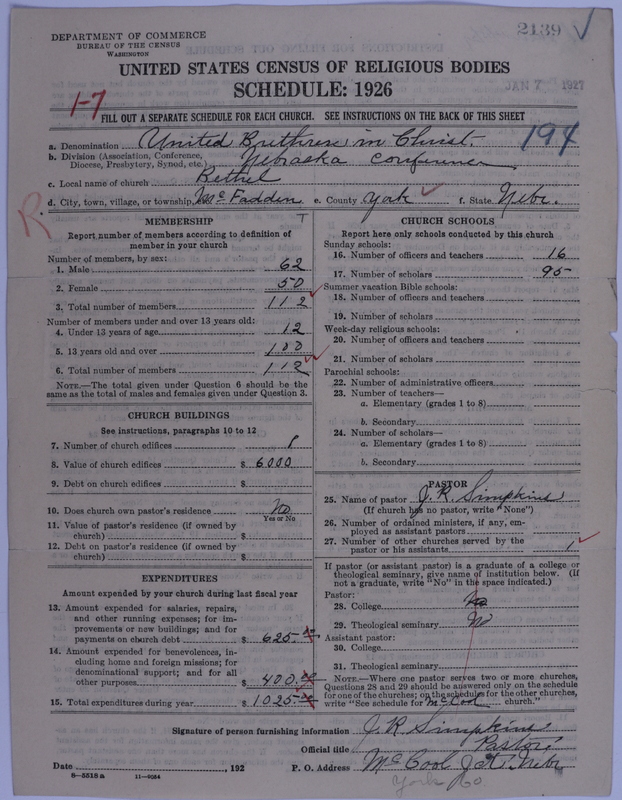 2139 ✓
DEPARTMENT OF COMMERCE
BUREAU OF THE CENSUS
WASHINGTON
UNITED STATES CENSUS OF RELIGIOUS BODIES
SCHEDULE: 1926
JAN 7 1927
1-7
FILL OUT A SEPARATE SCHEDULE FOR EACH CHURCH. SEE INSTRUCTIONS ON THE BACK OF THIS SHEET
194
a. Denomination United Brethren in Christ.
b. Division (Association, Conference, Diocese, Presbytery, Synod, etc.) Nebraska Conference
c. Local name of church Bethel
d. City, town, village, or township, McFadden e. County York ✓ f. State Nebr.
R
MEMBERSHIP
T
Report number of members according to definition of
member in your church
Number of members, by sex:
1. Male 62
2. Female 50
3. Total number of members 112 ✓
Number of members under and over 13 years old:
4. Under 13 years of age 12
5. 13 years old and over 100
6. Total number of members 112 ✓✓
NOTE.—The total given under Question 6 should be the
same as the total of males and females given under Question 3.
CHURCH BUILDINGS
See instructions, paragraphs 10 to 12
7. Number of church edifices 1
8. Value of church edifices $ 6000
9. Debt on church edifices $
10. Does church own pastor's residence No
Yes or No
11. Value of pastor's residence (if owned by
church) $
12. Debt on pastor's residence (if owned by
church) $
EXPENDITURES
Amount expended by your church during last fiscal year
13. Amount expended for salaries, repairs,
and other running expenses; for im-
provements or new buildings; and for
payments on church debt $ 625.00
14. Amount expended for benevolences, in-
cluding home and foreign missions; for
denominational support; and for all
other purposes $ 400.00
15. Total expenditures during year $ 1025.00
CHURCH SCHOOLS
Report here only schools conducted by this church
Sunday schools:
16. Number of officers and teachers 16
17. Number of scholars 95
Summer vacation Bible schools:
18. Number of officers and teachers
19. Number of scholars
Week-day religious schools:
20. Number of officers and teachers
21. Number of scholars
Parochial schools:
22. Number of administrative officers
23. Number of teachers—
a. Elementary (grades 1 to 8)
b. Secondary
24. Number of scholars—
a. Elementary (grades 1 to 8)
b. Secondary
PASTOR
25. Name of pastor J. R. Simpkins
(If church has no pastor, write "None")
26. Number of ordained ministers, if any, em-
ployed as assistant pastors
27. Number of other churches served by the
pastor or his assistants 1 ✓
If pastor (or assistant pastor) is a graduate of a college or
theological seminary, give name of institution below. (If
not a graduate, write "No" in the space indicated.)
Pastor:
28. College No
29. Theological seminary No
Assistant pastor:
30. College
31. Theological seminary
NOTE.—Where one pastor serves two or more churches,
Questions 28 and 29 should be answered only on the schedule
for one of the churches; on the schedules for the other churches,
write "See schedule for McCool church."
Signature of person furnishing information J. R. Simpkins
Official title Pastor
Date , 192
P. O. Address McCool Jct. Nebr
8—5518 a 11—9034
York Co